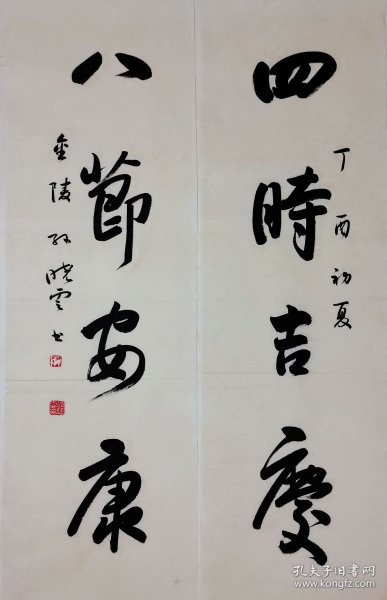 四時吉慶
丁酉初夏
八節安康
金陵孙晓云书
孔夫子旧书网
www.kongfz.com